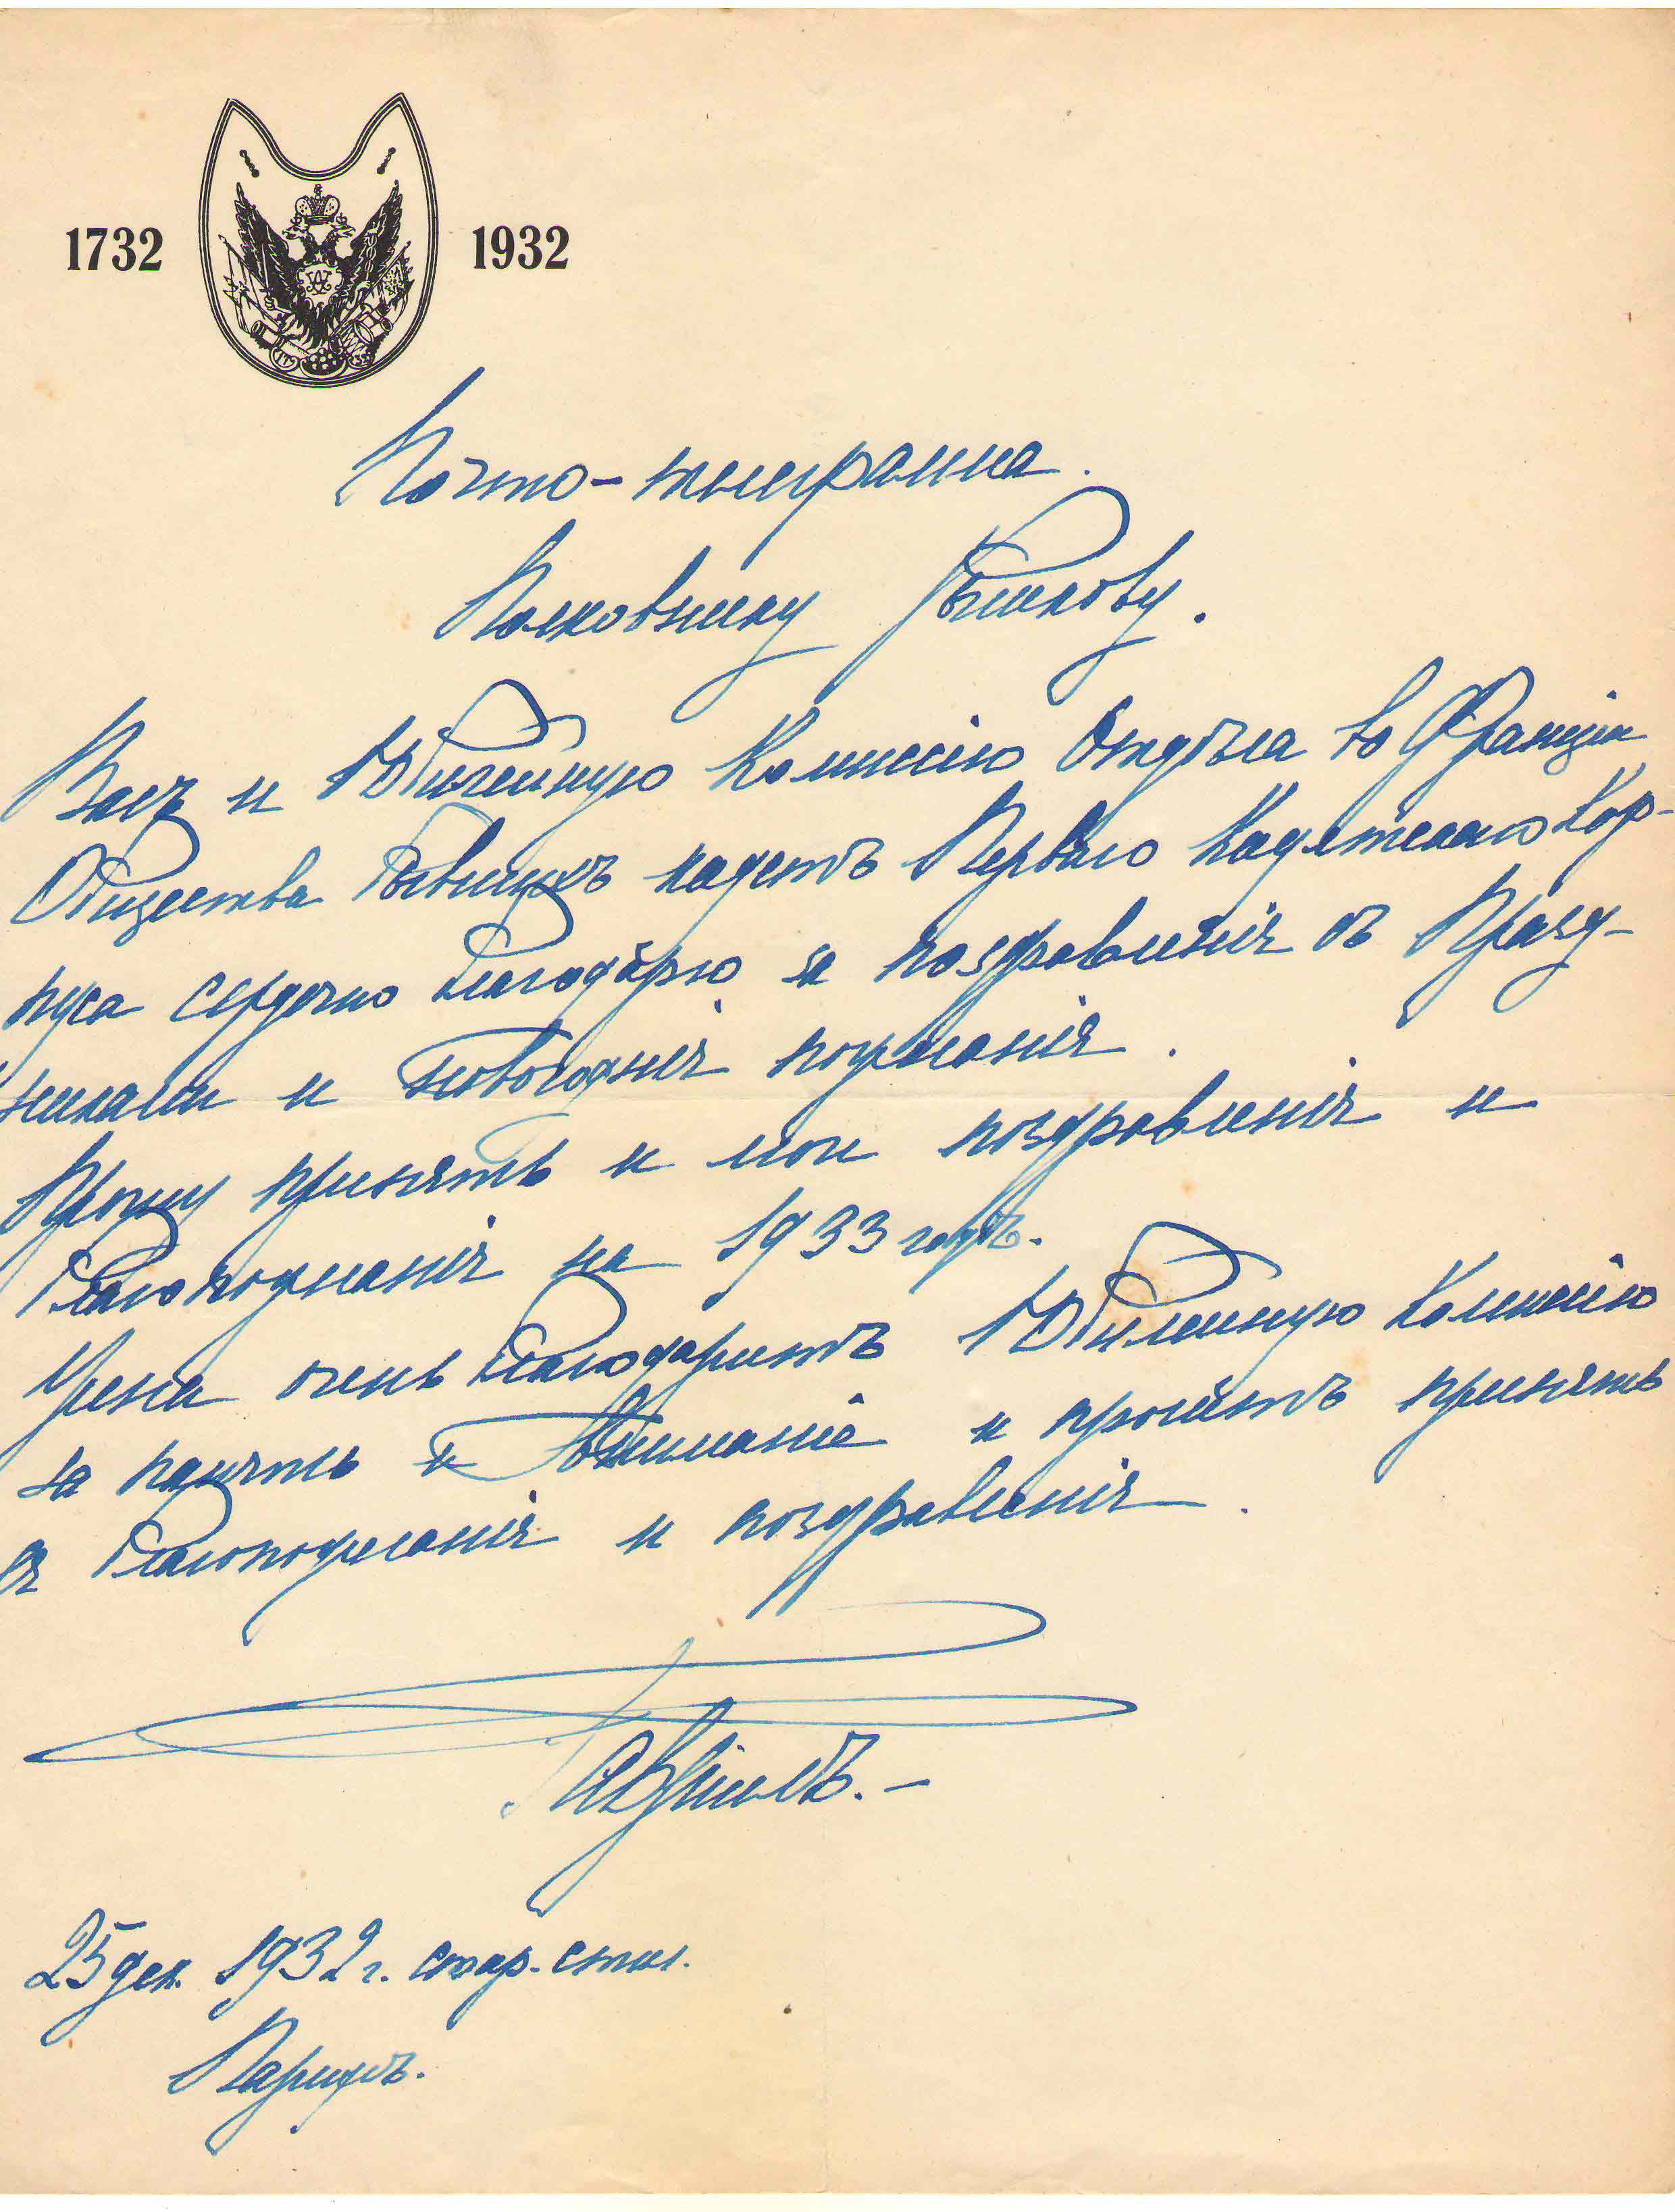 1732 1932
Почто-телеграмма.
Полковнику
Васъ и Юбилейную Комиссію Отдѣла во Франціи
Общества бывшихъ кадетъ Перваго Кадетскаго Кор-
пуса сердечно благодарю за поздравленія съ Празд-
никами и новогоднія пожеланія.
Прошу принять и мои поздравленія и
благопожеланія на 1933 годъ.
Жена очень благодаритъ Юбилейную Комиссію
за память и вниманіе и проситъ принять
ея благопожеланія и поздравленія.
25 дек. 1932 г. стар. стил.
Парижъ.